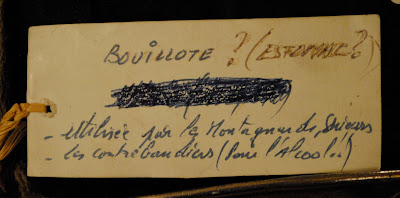 BOUILLOTE ? (ESTOMAC ?)
- Utilisée par les Montagnards, Skieurs
- Les contrebandiers (Pour l'Alcool)